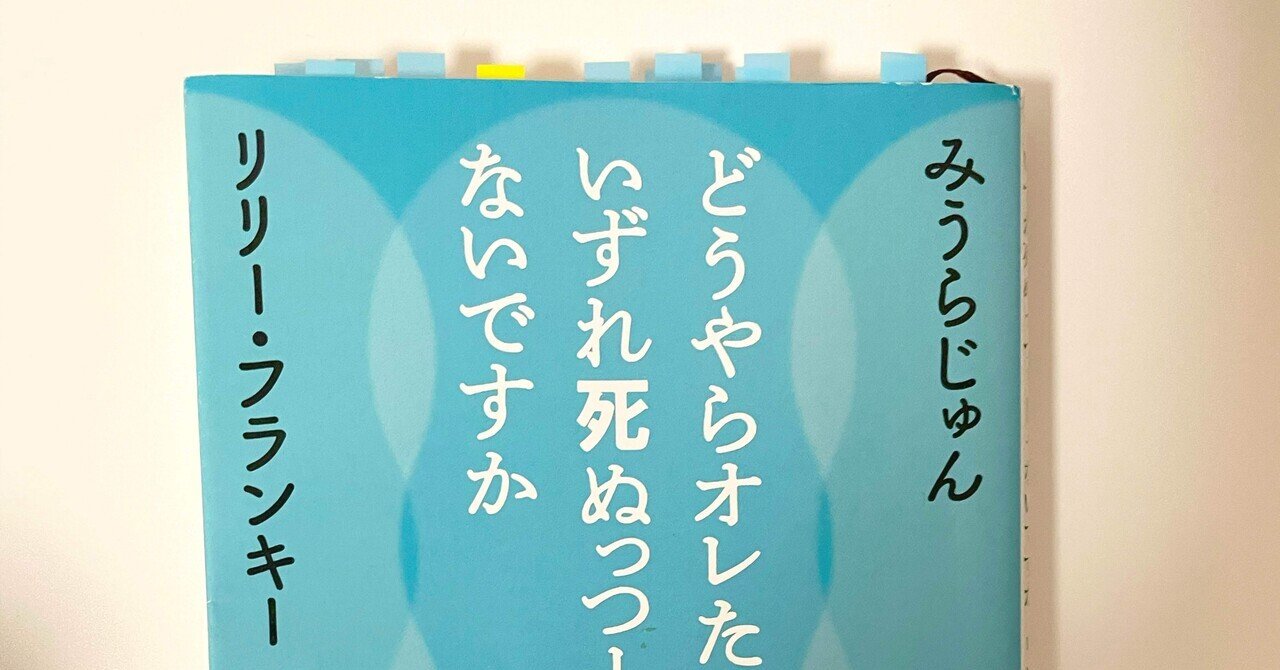 みうらじゅん
どうやらオレた
いずれ死ぬっつー
ないですか
リリー・フランキー